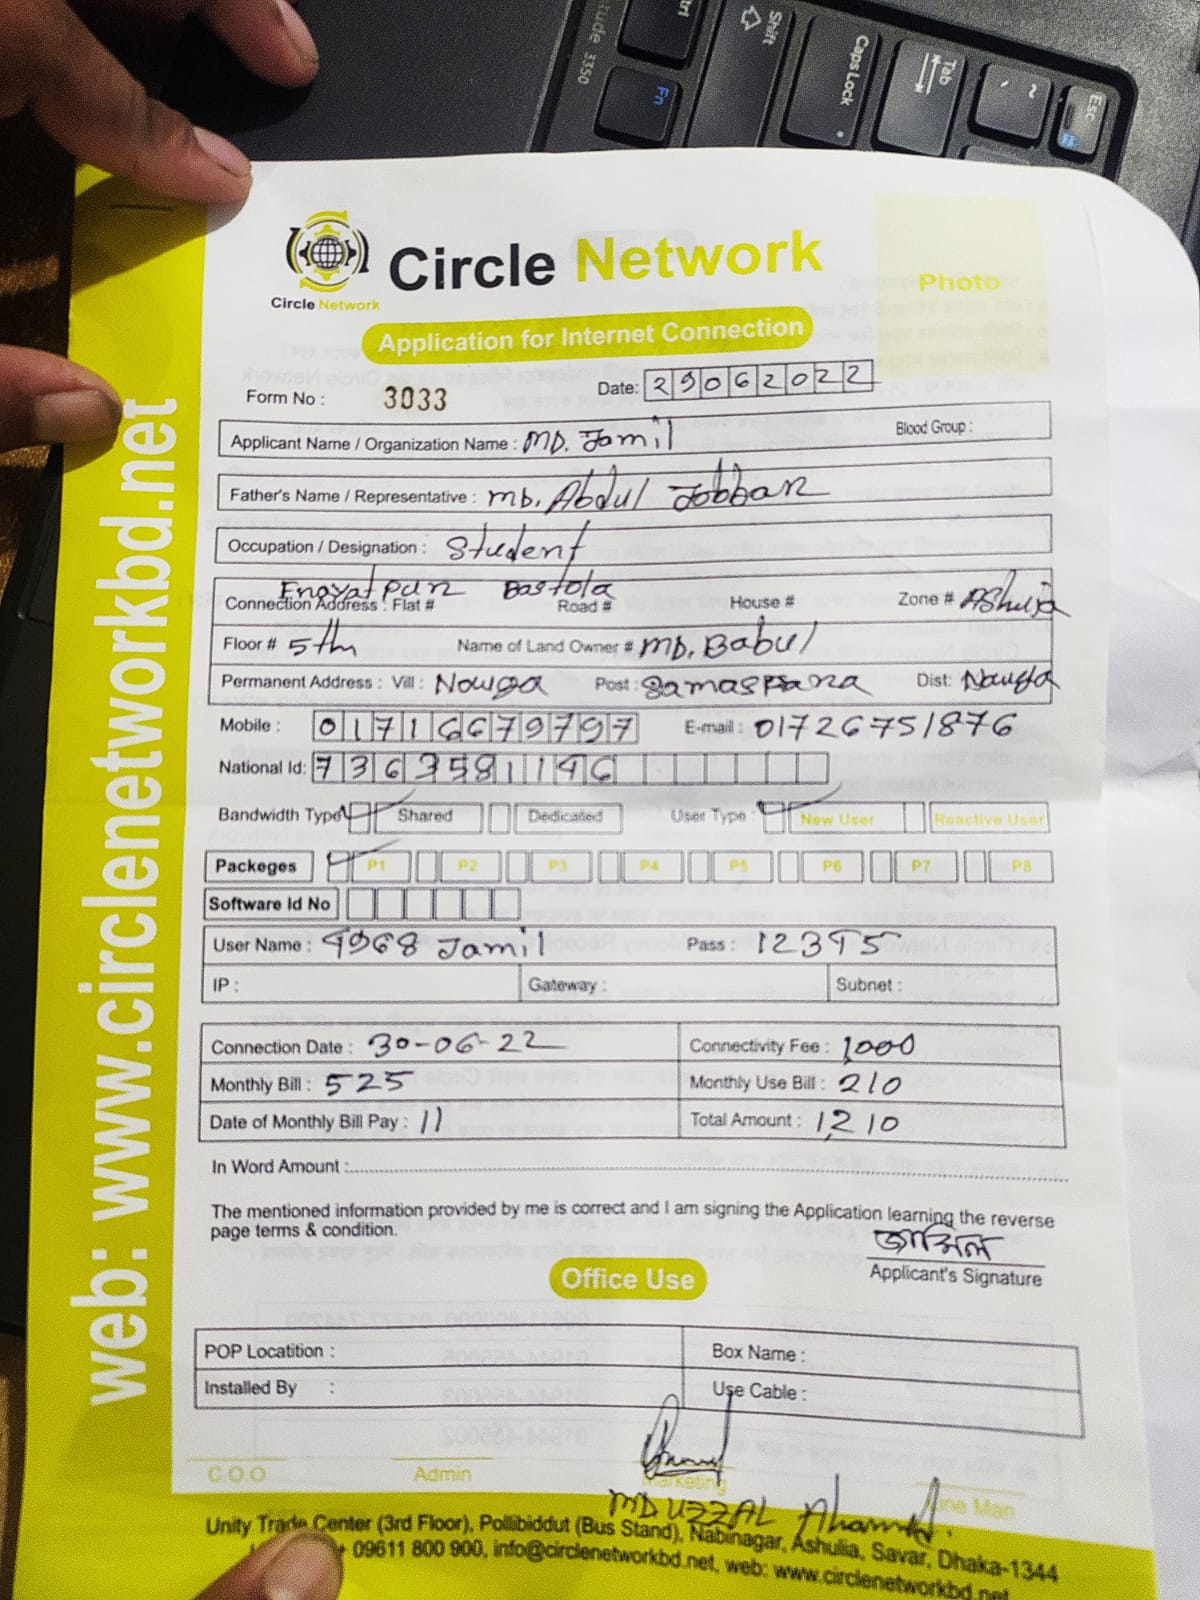 trl
Shift
Caps Lock
Tab
Esc
Fn
tude 3350
web: www.circlenetworkbd.net
Circle Network
Circle Network
Photo
Application for Internet Connection
Form No : 3033
Date: 29062022
Applicant Name / Organization Name : MD. Jamil
Blood Group :
Father's Name / Representative : MD. Abdul Jobbar
Occupation / Designation : Student
Enayatpur Bastola
Connection Address : Flat # Road # House # Zone # Ashulia
Floor # 5th Name of Land Owner # MD. Babul
Permanent Address : Vill : Nowga Post : Dist:
Mobile : 01716679797 E-mail : 01726751876
National Id: 7363581146
Bandwidth Type Shared Dedicated User Type : New User Reactive User
Packeges P1 P2 P3 P4 P5 P6 P7 P8
Software Id No
User Name : 4968 Jamil Pass : 12345
IP : Gateway : Subnet :
Connection Date : 30-06-22 Connectivity Fee : 1,000
Monthly Bill : 525 Monthly Use Bill : 210
Date of Monthly Bill Pay : 11 Total Amount : 1,210
In Word Amount :
The mentioned information provided by me is correct and I am signing the Application learning the reverse
page terms & condition.
জামিল
Applicant's Signature
Office Use
POP Locatition : Box Name :
Installed By : Use Cable :
C.O.O Admin Marketing Line Man
MD UZZAL Ahamed.
Unity Trade Center (3rd Floor), Pollibiddut (Bus Stand), Nabinagar, Ashulia, Savar, Dhaka-1344
09611 800 900, info@circlenetworkbd.net, web: www.circlenetworkbd.net